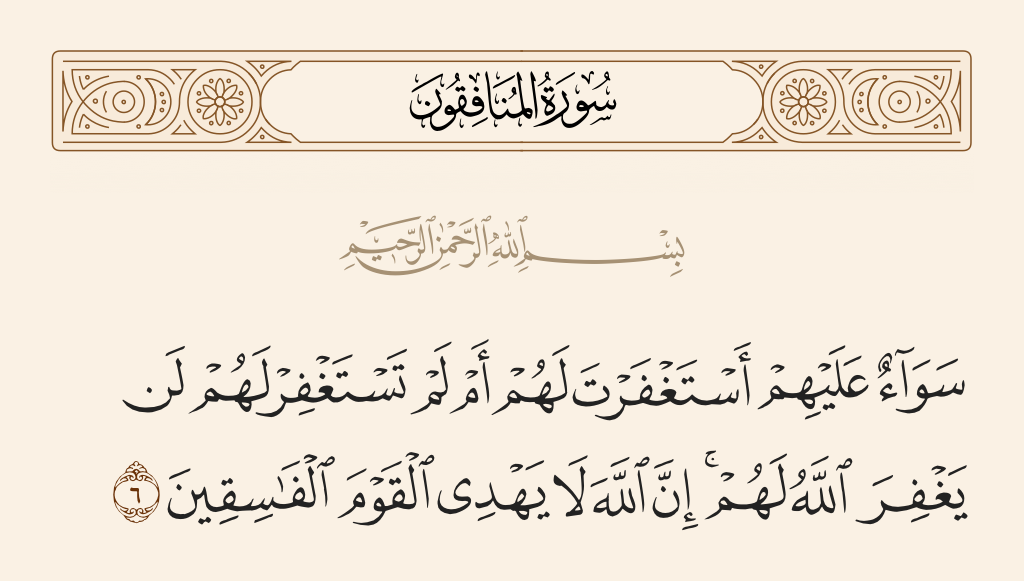 سُورَةُ المُنَافِقُونَ
بِسْمِ ٱللَّهِ ٱلرَّحْمَٰنِ ٱلرَّحِيمِ
سَوَآءٌ عَلَيْهِمْ أَسْتَغْفَرْتَ لَهُمْ أَمْ لَمْ تَسْتَغْفِرْ لَهُمْ لَن
يَغْفِرَ ٱللَّهُ لَهُمْ ۚ إِنَّ ٱللَّهَ لَا يَهْدِى ٱلْقَوْمَ ٱلْفَٰسِقِينَ ٦